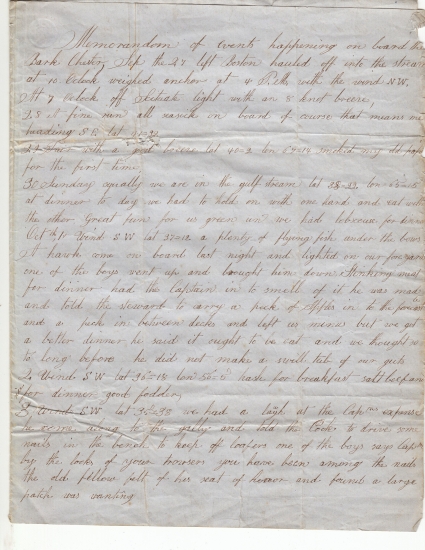 Memorandom of events happening on board the
Bark Chester, Sep the 27 left Boston hauled off into the stream
at 10 Oclock weighed anchor at 4 P.M. with the wind N.W.
At 7 oclock off Scituate light with an 8 knot breeze,
28 a fine run all seasick on board of course that means me
heading S E lat
29 with a good breeze lat 40=2 lon 69=14 smoked my old pipe
for the first time
30 Sunday squally we are in the gulf stream lat 38=39 lon
at dinner to day we had to hold on with one hand and eat with
the other great fun for us green un we had lobscouse for dinner
Oct th 1 Wind S W lat 37=12 a plenty of flying fish under the bows
A hawk came on board last night and lighted on our foreyard
one of the boys went up and brought him down Stinking meat
for dinner had the Captain in to smell of it he was mad
and told the steward to carry a peck of apples in to the forcastle
and a peck in between decks and left us mum but we got
a better dinner he said it ought to be eat and we thought so
to long before he did not make a swill tub of our guts
2 Wind S W lat 36=18 lon hash for breakfast salt beef and
for dinner good fodder,
3 Wind S.W. lat 36=38 we had a laugh at the Captns expense
he come along to the gally and told the Cook to drive some
nails in the bench to keep off loafers one of the boys says Captn
by the looks of your trowsers you have been among the nails
the old fellow felt of his seat of honor and found a large
patch was wanting